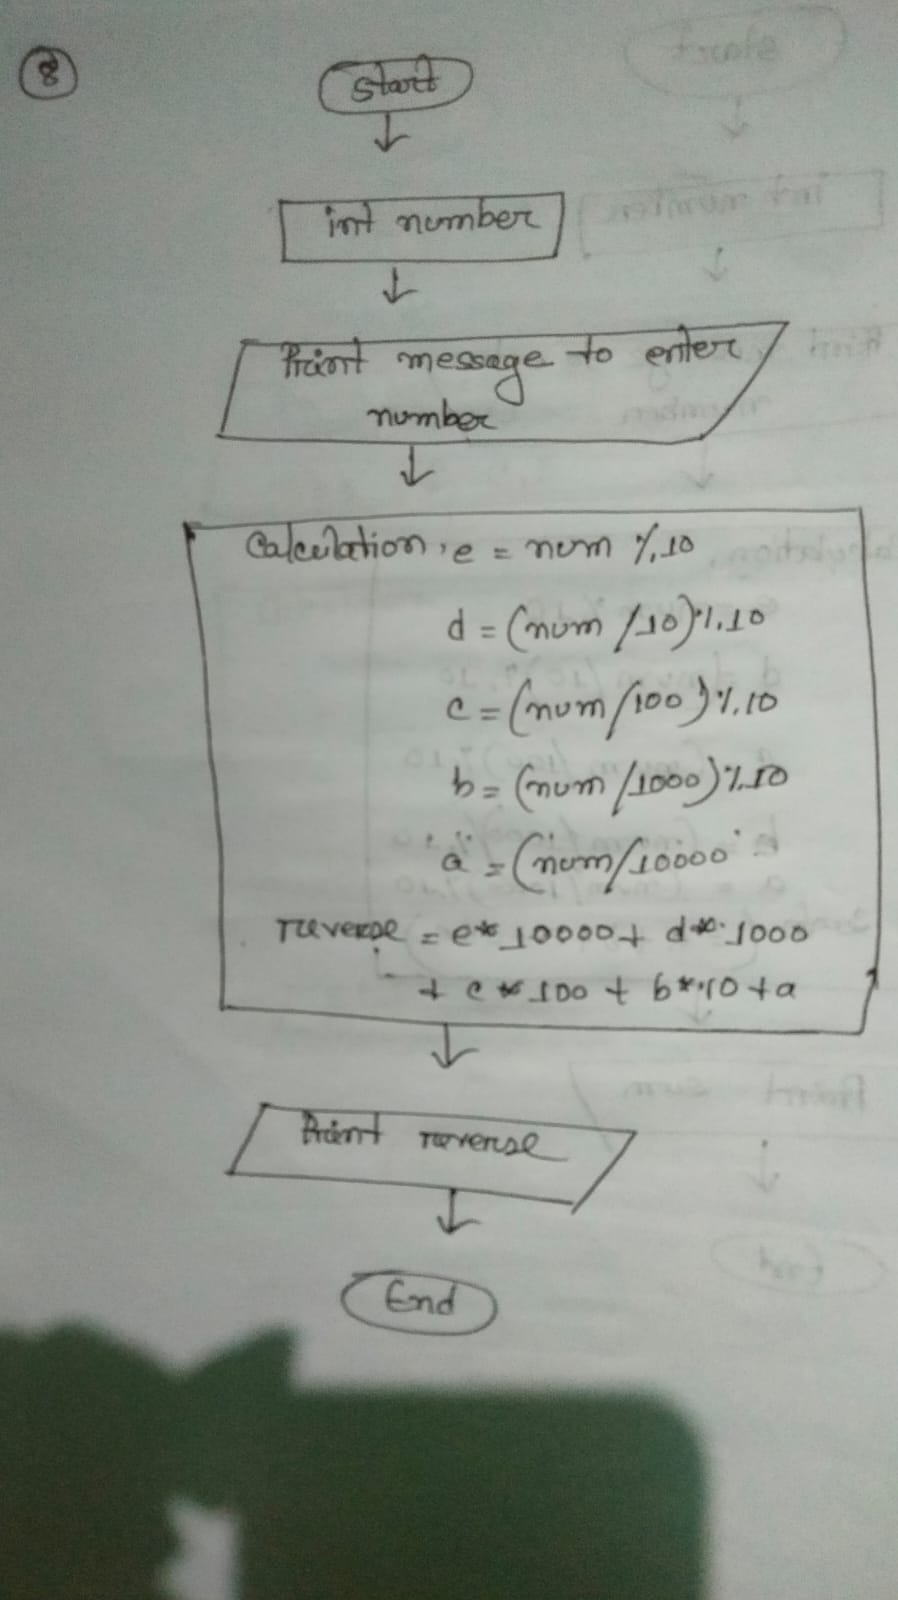 8
Start
int number
Print message to enter
number
Calculation, e = num %10
d = (num /10)%10
c = (num/100)%10
b = (num /1000)%10
a = (num/10000
reverse = e* 10000+ d* 1000
+ c * 100 + b*10 + a
Print reverse
End